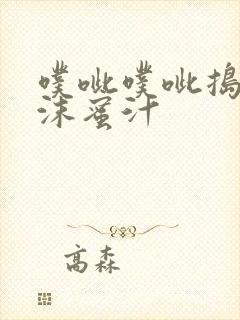 噗呲噗呲捣
沫蜜汁
高森